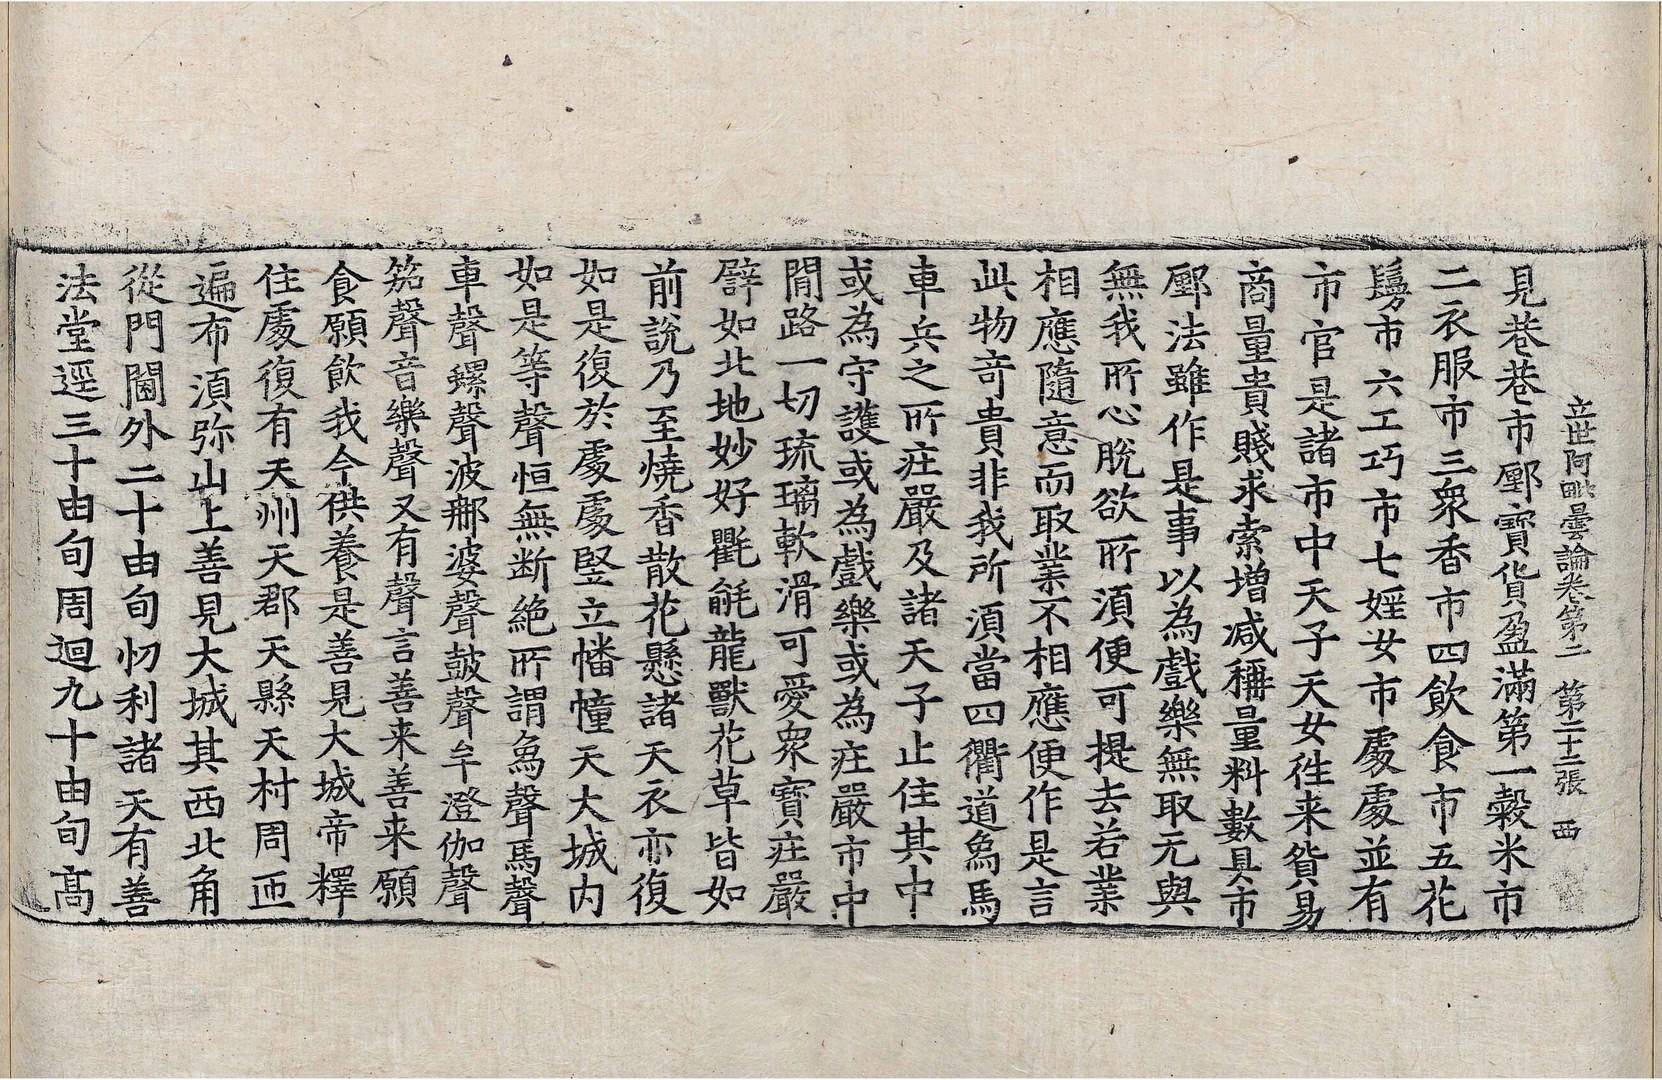 立世阿毗曇論卷第二　第二十二張　西
見巷巷市鄽寶貨盈滿第一穀米市
二衣服市三衆香市四飲食市五花
鬘市六工巧市七婬女市處處並有
市官是諸市中天子天女往来貨易
商量貴賤求索増减稱量料數具市
鄽法雖作是事以為戲樂無取无與
無我所心脫欲所湏便可提去若業
相應隨意而取業不相應便作是言
此物竒貴非我所湏當四衢道象馬
車兵之所莊嚴及諸天子止住其中
或為守護或為戲樂或為莊嚴市中
間路一切琉璃軟滑可愛衆寶莊嚴
譬如北地妙好氍毹龍獸花草皆如
前說乃至燒香散花懸諸天衣亦復
如是復於處處竪立幡幢天大城内
如是等聲恒無断絶所謂象聲馬聲
車聲螺聲波那婆聲鼓聲牟澄伽聲
笳聲音樂聲又有聲言善来善来願
食願飲我今供養是善見大城帝釋
住處復有天州天郡天縣天村周匝
遍布湏弥山上善見大城其西北角
從門閫外二十由旬忉利諸天有善
法堂逕三十由旬周迴九十由旬髙